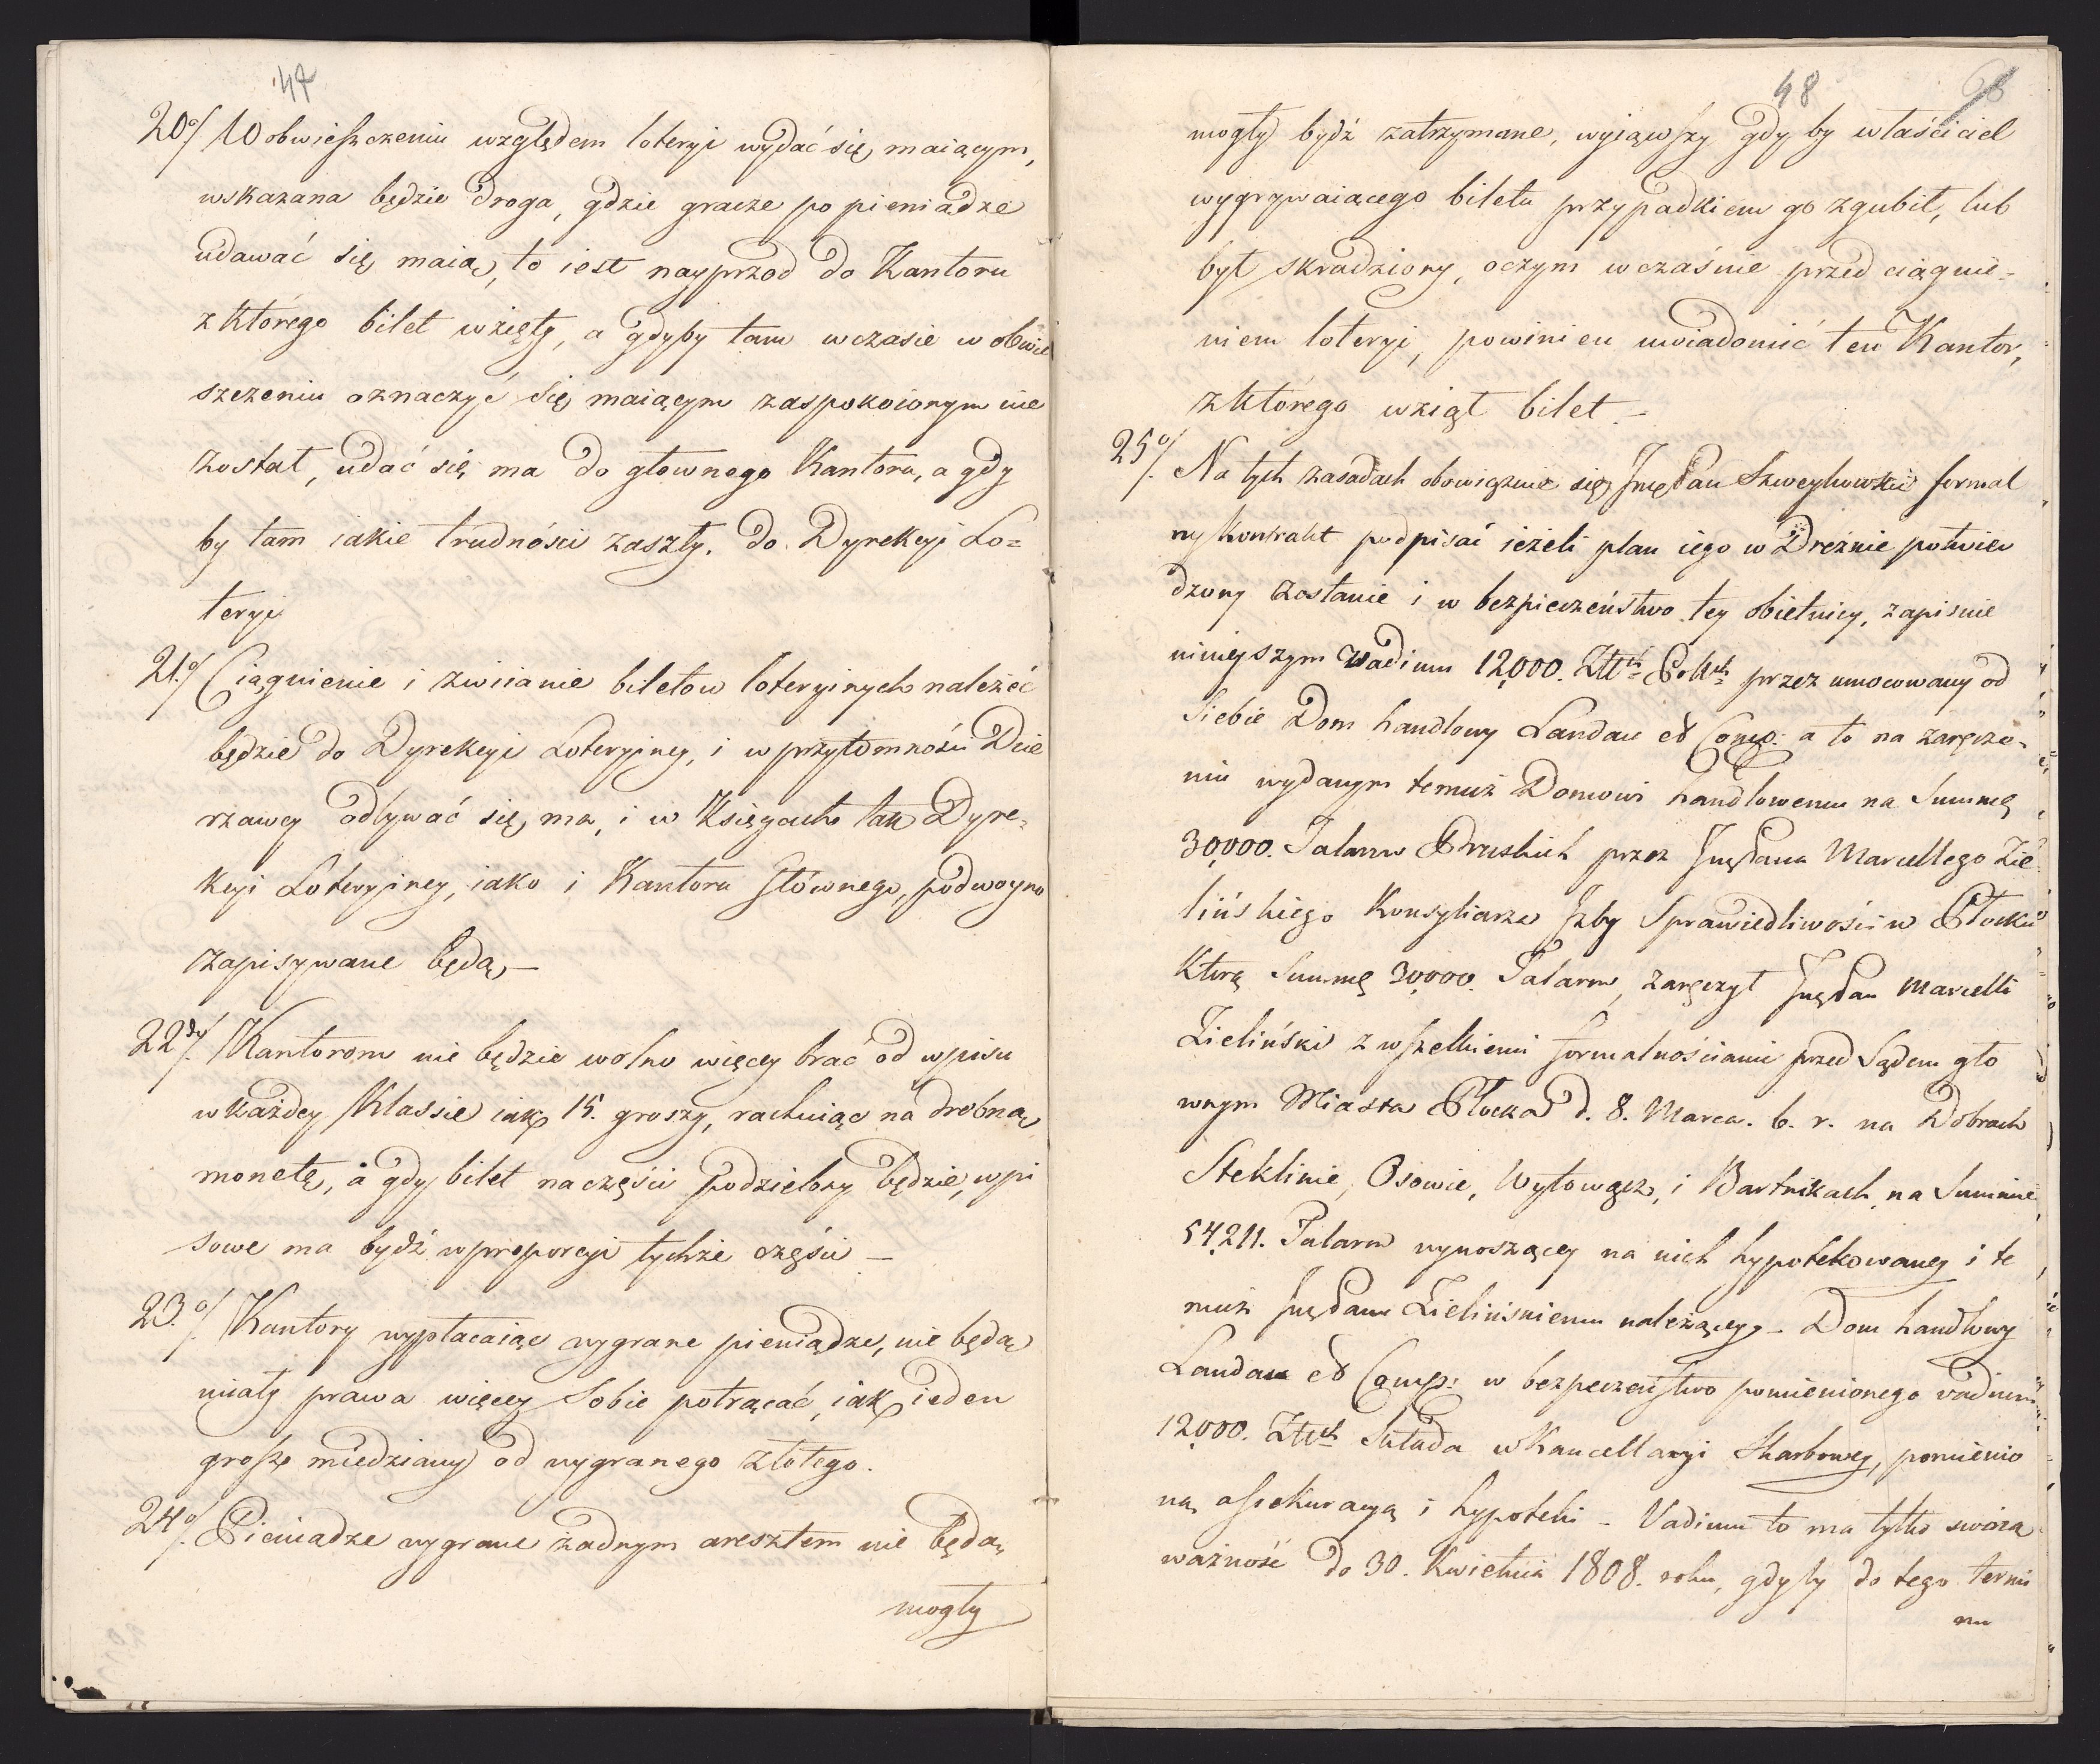 47
20º/ W obwieszczeniu względem loteryi wydać się maiącym,
wskazana będzie droga, gdzie gracze po pieniądze
udawać się maią, to iest nayprzod do Kantoru
z którego bilet wzięty, a gdyby tam w czasie w obwie
szczeniu oznaczyć się maiącym zaspokoionym nie
został, udać się ma do głownego Kantoru, a gdy
by tam iakie trudności zaszły, do Dyrekcyi Lo=
teryi
21º/ Ciągnienie i zwiianie biletow loteryinych należeć
będzie do Dyrekcyi Loteryiney, i w przytomności Dzie
rzawcy odbywać się ma, i w Księgach tak Dyre=
kcyi Loteryiney, iako i Kantoru Głównego, podwoyno
zapisywane będą,—
22do/. Kantorom nie będzie wolno więcey brać od wpisu
w każdey Klassie iak 15. groszy, rachuiąc na drobną
monetę, a gdy bilet na części podzielony będzie, wpi
sowe ma bydź w proporcyi tychże części —
23.º/. Kantory wypłacaiąc wygrane pieniądze, nie będą
miały prawa więcey Sobie potrącać, iak ieden
grosz miedziany od wygranego złotego.
24º/. Pieniądze wygrane żadnym aresztem nie będą
mogły
48
mogły bydź zatrzymane, wyiąwszy gdy by właściciel
wygrywaiącego biletu przypadkiem go zgubił, lub
był skradziony, o czym w czaśnie przed ciągnie=
niem loteryi, powinien uwiadomić ten Kantor,
z którego wziął bilet.—
25º/. Na tych zasadach obowiązuie się Jmć Pan Szweykowski formal
ny Kontrakt podpisać ieżeli plan iego w Dreźnie potwier
dzony zostanie i w bezpieczeństwo tey obietnicy, zapisuie
ninieyszym Vadium 12,000. Złtch Polsch przez umocowany od
Siebie Dom handlowy Landau et Comp: a to na zaręcze=
niu wydanym temuż Domowi handlowemu na Summę
30,000. Talarow Pruskich przez Jmć Pana Marcellego Zie
lińskiego Konsyliarza Izby Sprawiedliwości w Płocku
Którą Summę 30,000. Talarow, zaręczył Jmć Pan Marcelli
Zieliński z wszelkiemi formalnościami przed Sądem gło
wnym Miasta Płocka d. 8. Marca. b. r. na Dobrach
Steklinie, Osowie, i Bartnikach, na Summie
54,211. Talarow wynoszącey na nich hypotekowaney i te
muż Jmć Panu Zielińskiemu należącey,— Dom handlowy
Landau et Comp: w bezpieczeństwo pomienionego vadium
12,000. Złtch Składa w Kancellaryi Skarbowey, pomienio
ną assekuracyą i hypoteki — Vadium to ma tylko swoią
ważność do 30. Kwietnia 1808. roku, gdyby do tego termi
nu